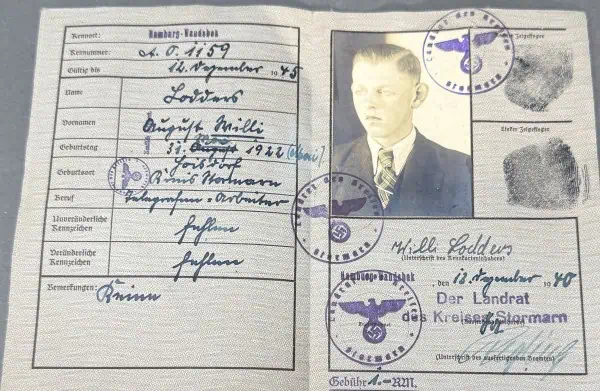 Kennort: Hamburg-Wandsbek
Kennummer: A.O. 1159
Gültig bis 12. Dezember 1945
Name Lodders
Vornamen August Willi
Geburtstag 31. August 1922 (Mai)
Geburtsort Hoisdorf
Kreis Stormarn
Beruf Telegrafen-Arbeiter
Unveränderliche
Kennzeichen fehlen
Veränderliche
Kennzeichen fehlen
Bemerkungen: Keine
Landrat des Kreises
Stormarn
Rechter Zeigefinger
Linker Zeigefinger
Landrat des Kreises
Stormarn
Willi Lodders
(Unterschrift des Kennkarteninhabers)
Hamburg-Wandsbek, den 13. Dezember 1940
Der Landrat
des Kreises Stormarn
Landrat des Kreises
Stormarn
(Unterschrift des ausfertigenden Beamten)
Gebühr 1.- RM.